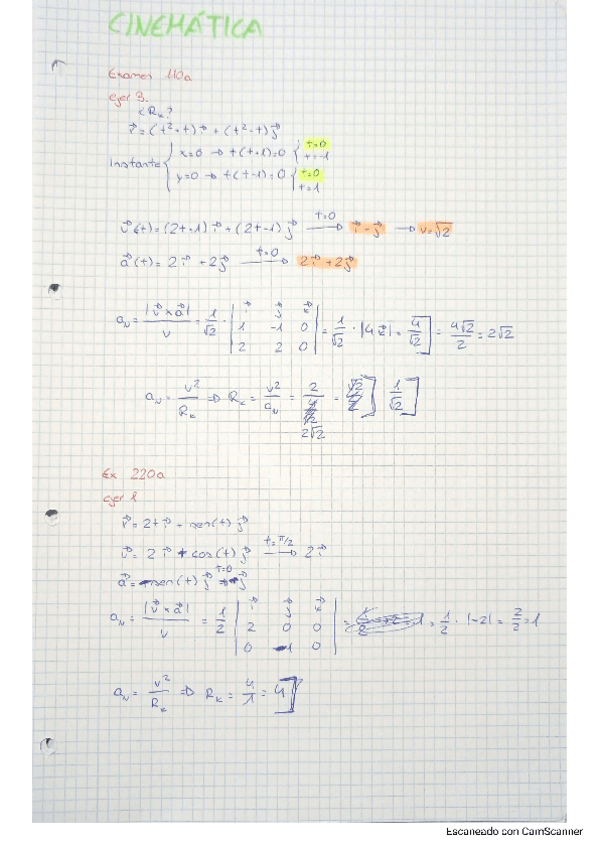 CINEMÁTICA
Examen 110a
ejer 3.
¿Rκ?
r⃗ = (t²+t) i⃗ + (t²-t) j⃗
instante { x=0 → t(t+1)=0 { t=0
t=-1
y=0 → t(t-1)=0 { t=0
t=1
v⃗(t) = (2t+1) i⃗ + (2t-1) j⃗ t=0 → i⃗ - j⃗ → v=√2
a⃗(t) = 2 i⃗ + 2 j⃗ t=0 → 2 i⃗ + 2 j⃗
aN = |v⃗ x a⃗| / v = 1/√2 · | i⃗ j⃗ k⃗ | 1 -1 0 | 2 2 0 | = 1/√2 · |4 k⃗| = 4/√2 ] = 4√2/2 = 2√2
aN = v²/Rκ ⇒ Rκ = v²/aN = 2/2√2 = 1/√2 ]
Ex 220a
ejer 1
r⃗ = 2t i⃗ + sen(t) j⃗
v⃗ = 2 i⃗ + cos(t) j⃗ t=π/2 → 2 i⃗
a⃗ = -sen(t) j⃗ t=0 → -j⃗
aN = |v⃗ x a⃗| / v = 1/2 | i⃗ j⃗ k⃗ | 2 0 0 | 0 -1 0 | = 1/2 · |-2| = 2/2 = 1
aN = v²/Rκ ⇒ Rκ = 4/1 = 4 ]
Escaneado con CamScanner